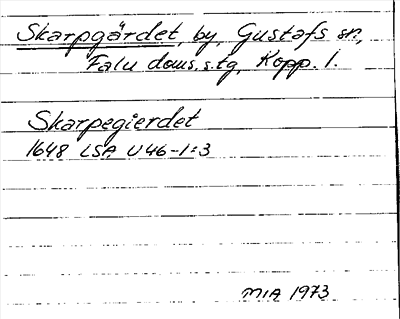 Skarpgärdet, by, Gustafs sn,
Falu doms.s.tg, Kopp. l.
Skarpegierdet
1648 LSA U46-1:3
MIA 1973